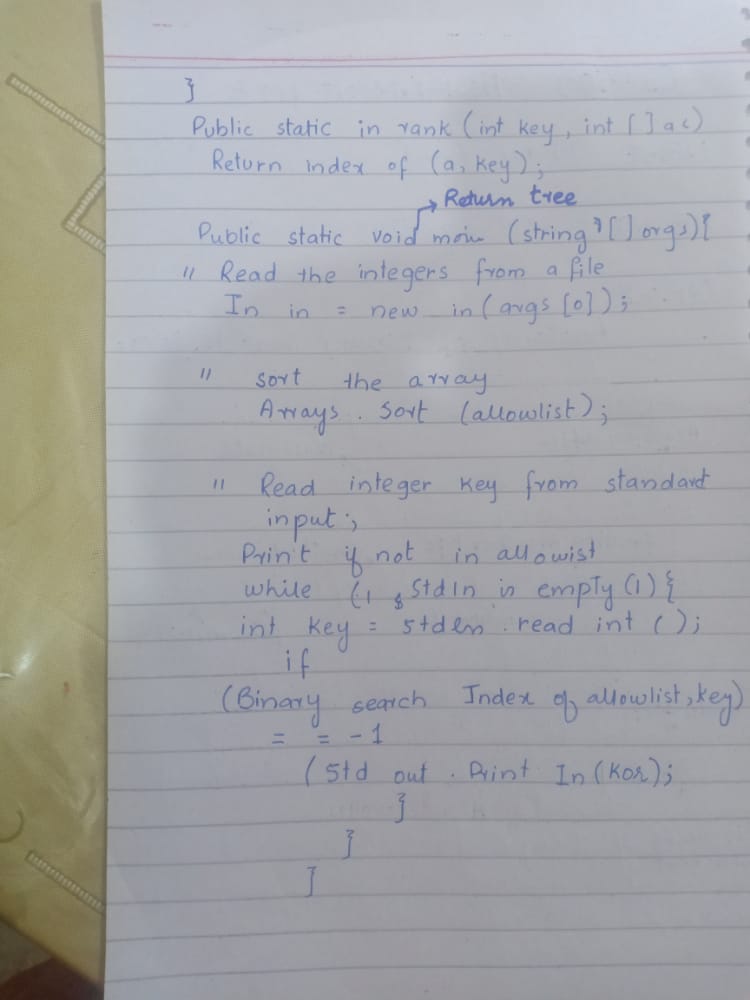 }
Public static in rank (int key, int [] ac)
Return index of (a, key);
Return tree
Public static void main (string [] args){
" Read the integers from a file
In in = new in (args [0]);
" sort the array
Arrays . Sort (allowlist);
" Read integer key from standard
input;
Print if not in allowist
while (1 StdIn is empty (1) {
int key = stden . read int ();
if
(Binary search Index of allowlist, key)
= = -1
(Std out . Print In (Kor);
}
}
]